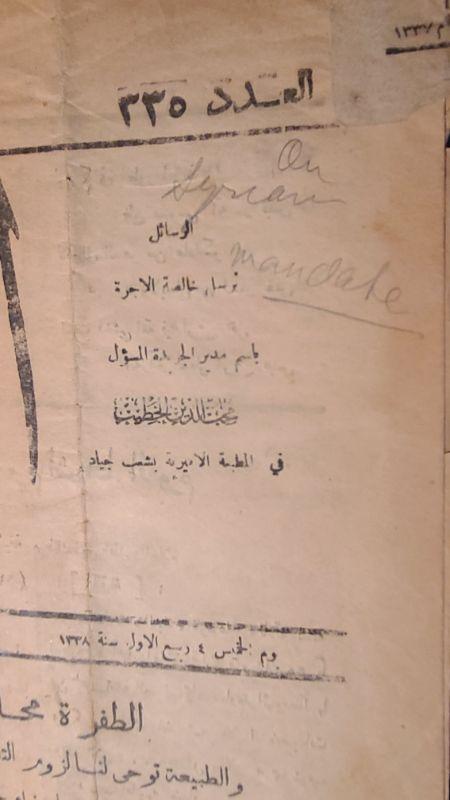 م ١٣٣٧
العدد ٣٣٥
On
Syrian
mandate
الرسائل
ترسل خالصة الاجرة
باسم مدير الجريدة المسؤل
محب الدين الخطيب
في المطبعة الاميرية بشعب جياد
يوم الخميس ٤ ربيع الاول سنة ١٣٣٨
الطفرة محا
والطبيعة توحى لنا لزوم الت